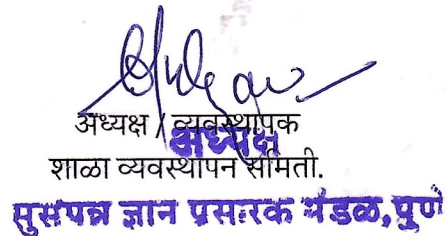 अध्यक्ष / व्यवस्थापक
अध्यक्ष
शाळा व्यवस्थापन समिती.
सुसंपन्न ज्ञान प्रसारक मंडळ, पुणे